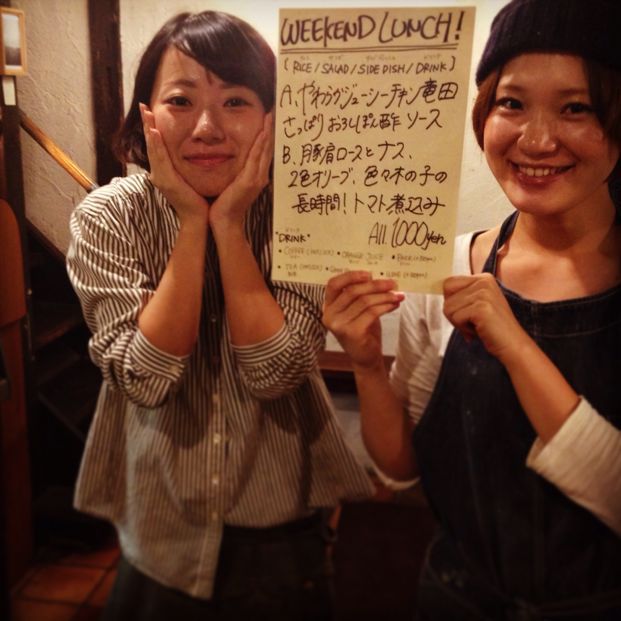 WEEKEND LUNCH!
[RICE/SALAD/SIDE DISH/DRINK]
A、やわらかジューシーチキン竜田
さっぱりおろしぽん酢ソース
B、豚肩ロースとナス、
2色オリーブ、色々木の子の
長時間!トマト煮込み
All 1000yen
"DRINK"
・COFFEE (HOT/ICE) ・ORANGE JUICE ・BEER
・TEA (HOT/ICE) ・WINE